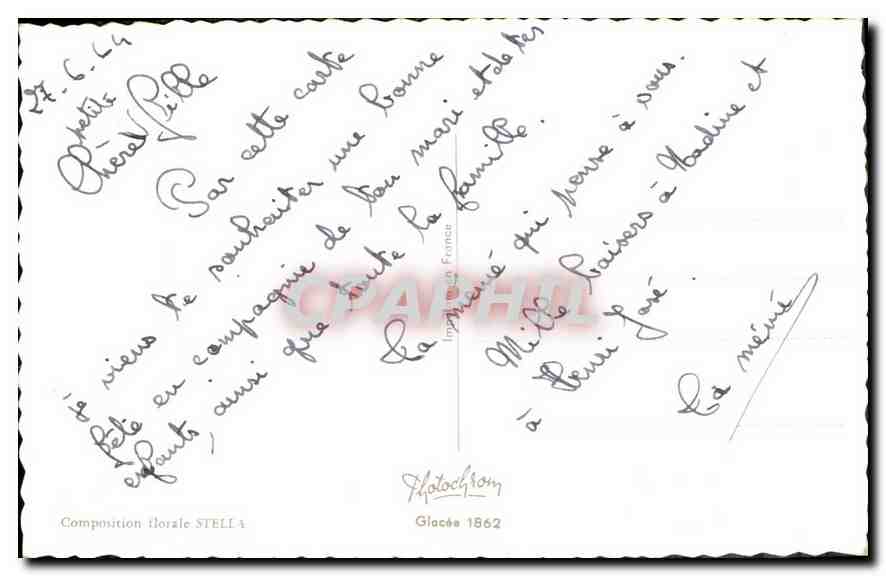 27-6-64
Chère petite fille
Par cette carte
je viens te souhaiter une bonne
fête en compagnie de ton mari et de tes
enfants, ainsi que toute la famille.
Ta mémé qui pense à vous.
Mille baisers à Nadine et
à Henri José.
Ta mémé
CPAPHIL
Imprimé en France
Photochrom
Composition florale STELLA
Glacée 1862